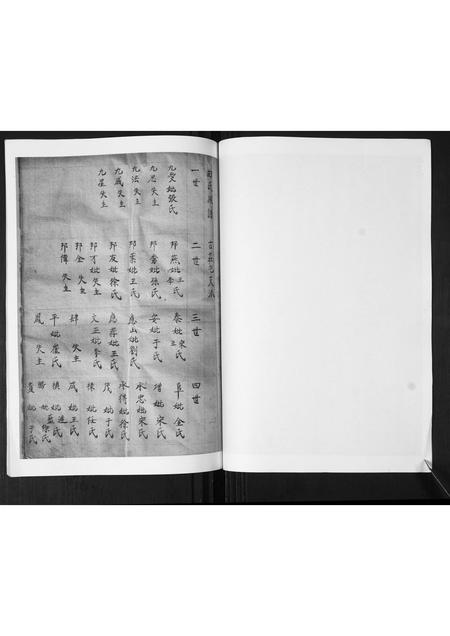 一世
九受妣張氏
九思失主
九法失主
九成失主
九星失主
二世
邦燕妣王氏李氏
邦奮妣孫氏
邦業妣王氏
邦友妣徐氏
邦才妣失主
邦金失主
邦傳失主
三世
泰妣宋氏王
安妣于氏
應山妣劉氏
應蔣妣王氏
文正妣李氏
肆失主
平妣崔氏
鳳失主
四世
阜妣金氏
增妣宋氏
永忠妣宋氏
永得妣徐氏
茂妣于氏
棟妣任氏
成妣王氏
妣連氏
妣藍氏徐氏
貴妣于氏